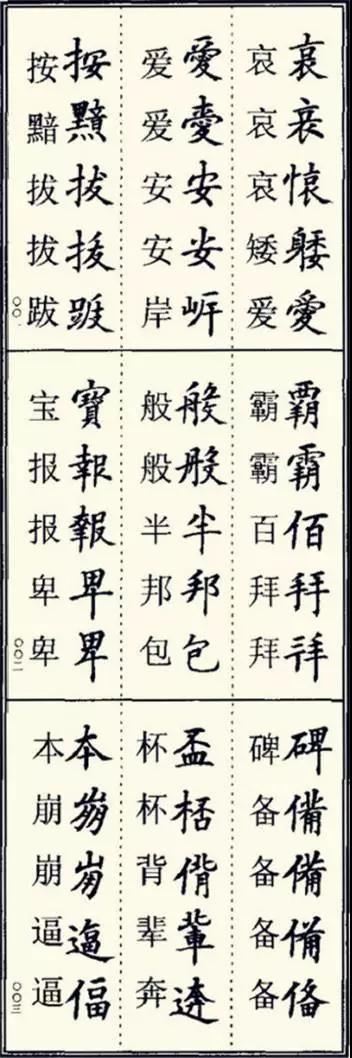 哀哀愛
哀哀哀矮爱
愛安安
爱爱安安岸
按拔
按黯拔拔跋
〇〇一
覇霸佰拜
霸霸百拜拜
般般半邦包
般般半邦包
寶報報卑卑
宝报报卑卑
〇〇二
碑備備備俻
碑备备备备
盃桮偝輩
杯杯背辈奔
本崩逼偪
本崩崩逼逼
〇〇三